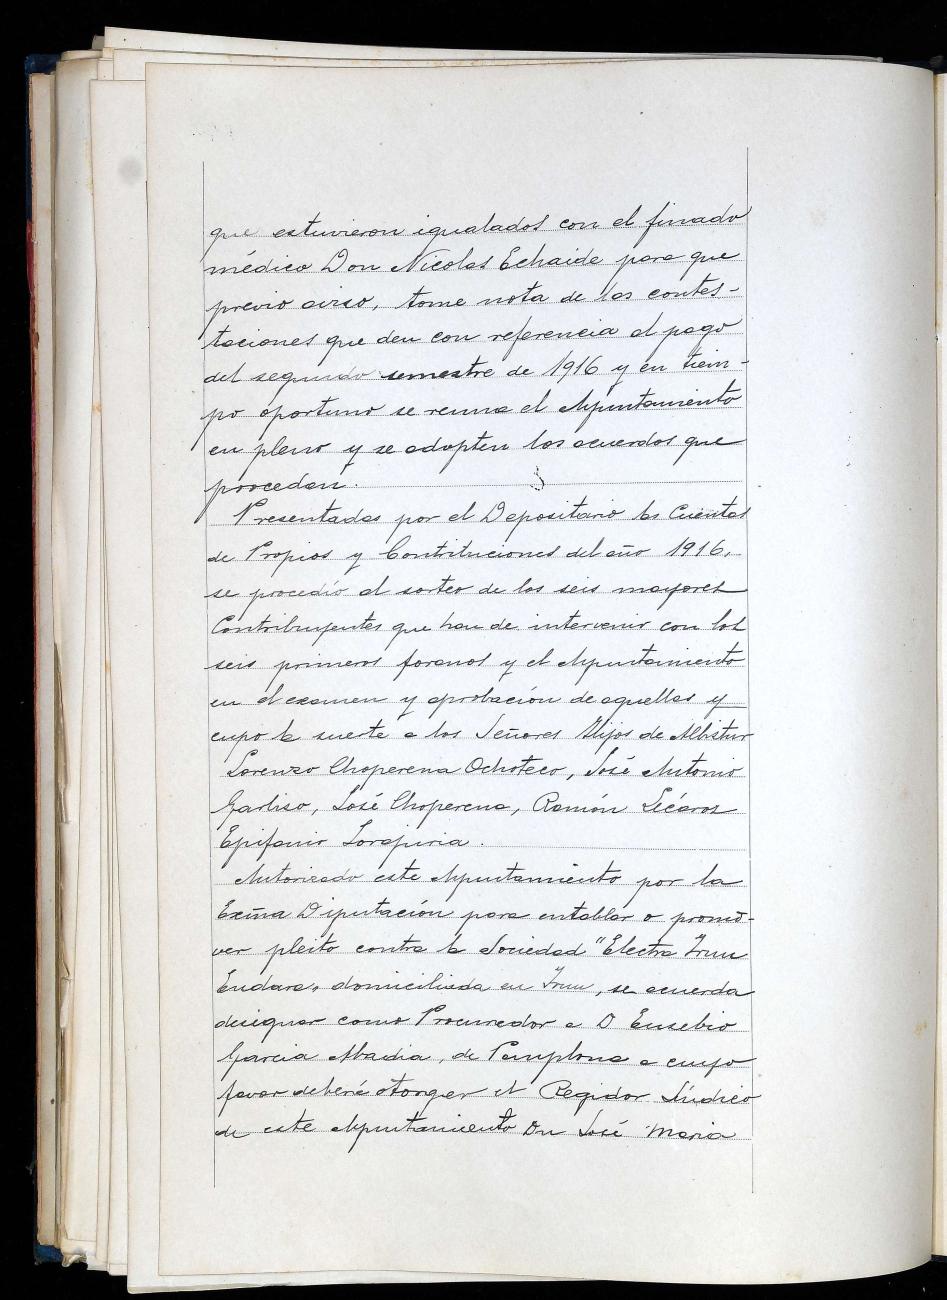 que estuvieron igualados con el finado
médico Don Nicolas Echaide para que
previo aviso, tome nota de las contes-
taciones que den con referencia al pago
del segundo semestre de 1916 y en tiem-
po oportuno se reuna el Ayuntamiento
en pleno y se adopten los acuerdos que
procedan.
Presentadas por el Depositario las Cuentas
de Propios y Contribuciones del año 1916,
se procedió al sorteo de los seis mayores
Contribuyentes que han de intervenir con los
seis primeros foranos y el Ayuntamiento
en el examen y aprobación de aquellas y
cupo la suerte a los Señores Hijos de Albistur
Lorenzo Choperena Ochoteco, José Antonio
Garbiso, José Choperena, Ramón Lécaroz
Epifanio
Autorizado este Ayuntamiento por la
Excma Diputación para entablar o promo-
ver pleito contra la Sociedad "Electra Irun
Endara" domiciliada en Irun, se acuerda
designar como Procurador a D Eusebio
Garcia Abadia, de Pamplona a cuyo
favor deberá otorgar el Regidor Síndico
de este Ayuntamiento Dn José Maria